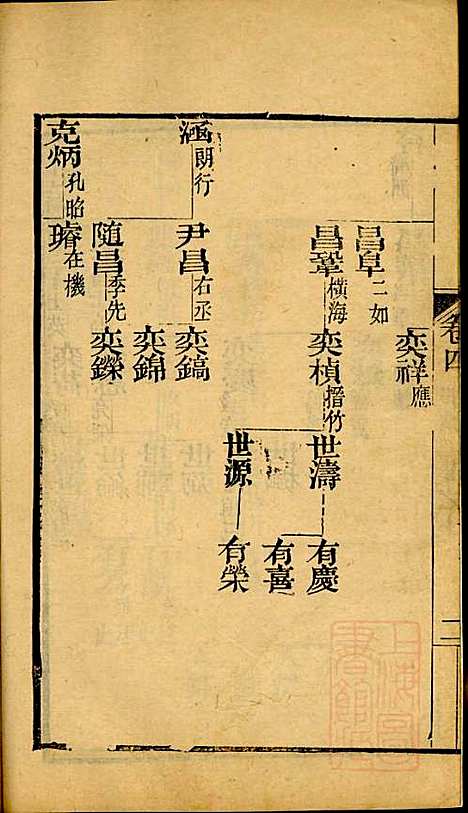 卷四
二
奕祥應
昌阜二如
昌鞏橫海
奕楨搢竹
世濤
有慶
有喜
世源
有榮
涵朗行
尹昌右丞
奕鎬
奕錦
隨昌季先
奕鑅
克炳孔昭
璿在機
上海圖書館藏